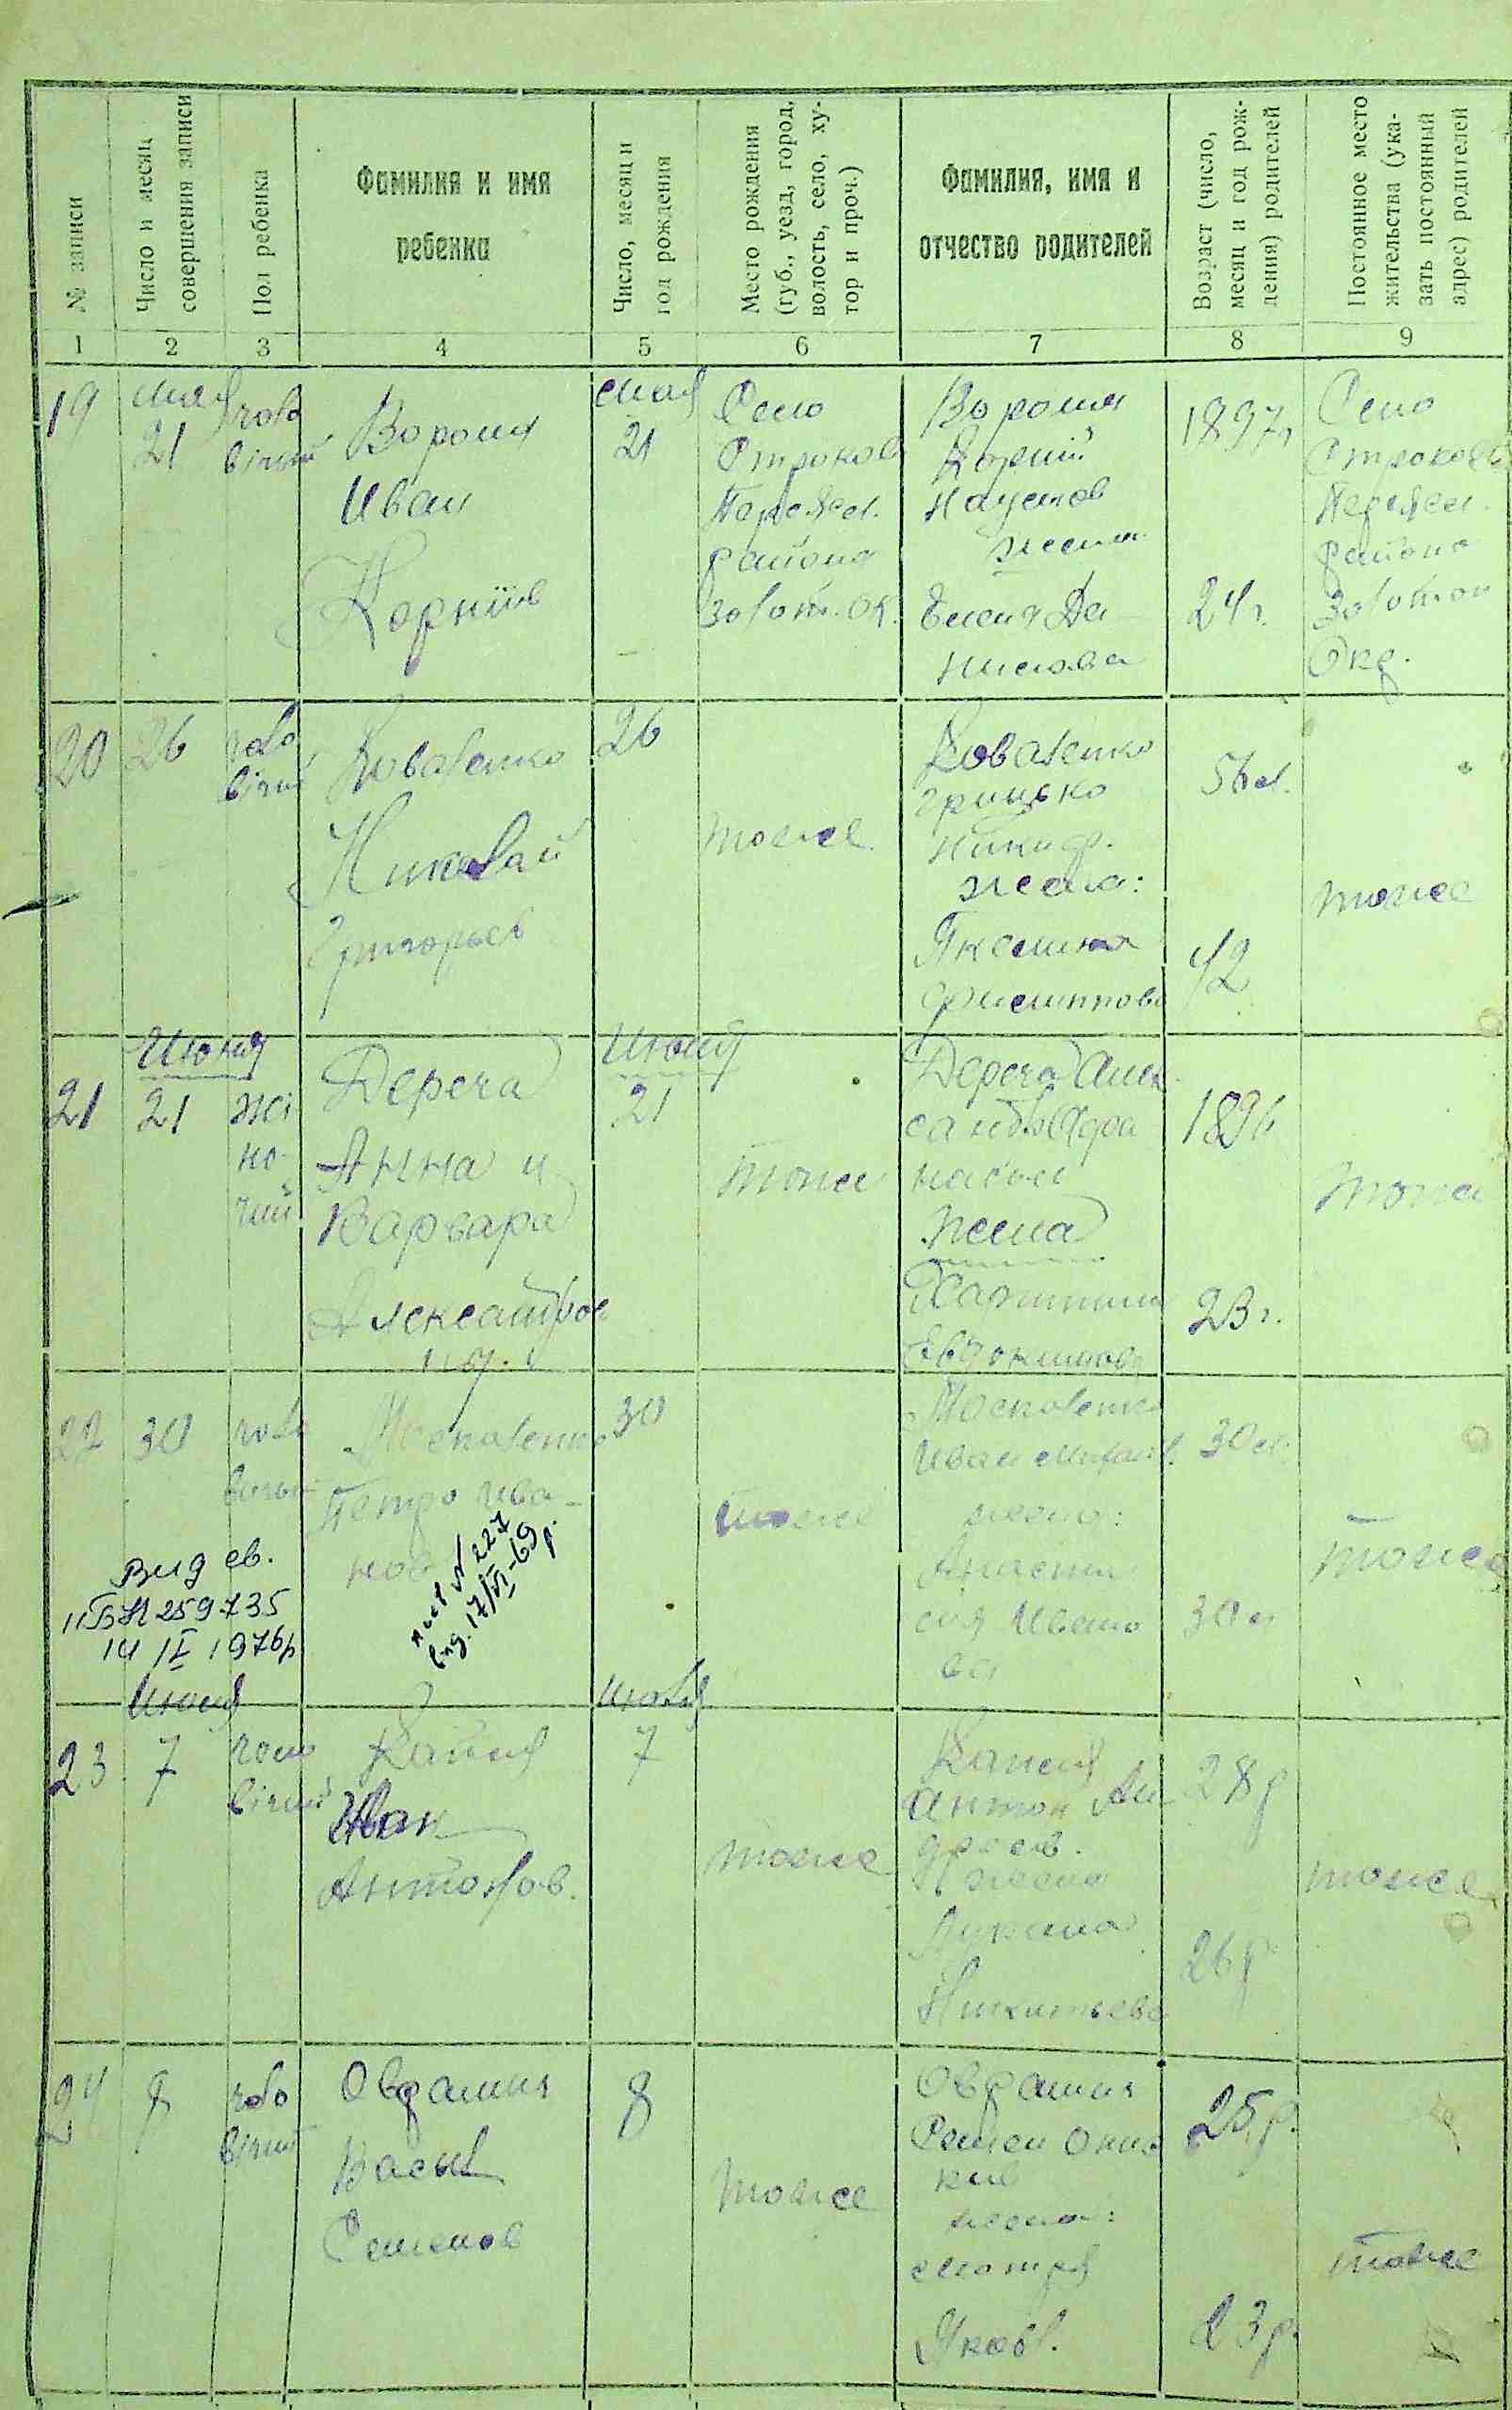 № записи
Число и месяц
совершения записи
Пол ребенка
Фамилия и имя
ребенка
Число, месяц и
год рождения
Место рождения
(губ., уезд, город,
волость, село, ху-
тор и проч.)
Фамилия, имя и
отчество родителей
Возраст (число,
месяц и год рож-
дения) родителей
Постоянное место
жительства (ука-
зать постоянный
адрес) родителей
1
2
3
4
5
6
7
8
9
19
Мая
21
чоло
вічий
Вороня
Иван
Корніїв
Мая
21
Село
Строкова
Переясл.
района
Золот. ок.
Вороня
Корній
Наумов
жена
Елена Де
нисова
1897г
24г.
Село
Строкова
Переясл.
района
Золотон
Окр.
20
26
чоло
вічий
Коваленко
Николай
Григорьев
26
тоже
Коваленко
Грицько
Никиф.
жена:
Филиппова
56л.
42
тоже
21
Июня
21
жі
но
чий
Дереча
Анна и
Варвара
Александров
Июня
21
тоже
Дереча Алек
сандр Афа
насьев
Жена
Харитина
Евдокимова
1896
23г.
тоже
22
30
чоло
вичий
Москаленко
Петро Ива-
нов
30
тоже
Москаленко
Иван Михайл.
жена:
Анаста
сия Ивано
ва
30л.
30л
тоже
Вид св.
259735
1976р
№ 227
вид. 17/VI-69
р.
23
Июля
7
чоло
вічий
Иван
Антонов.
Июля
7
тоже
Антон Ан
дреев.
жена
Лукина
Никитьева
28р
26р
тоже
24
8
чоло
вічий
Овдамия
Васил
Семенов
8
тоже
Овдамия
Семен
жена:
Мотря
Яковл.
25р.
23р.
тоже